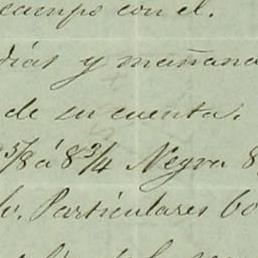 con el.
dias y mañana
de su cuenta.
5/8 á 8 3/4 Negra 8
lo. Particulares 60